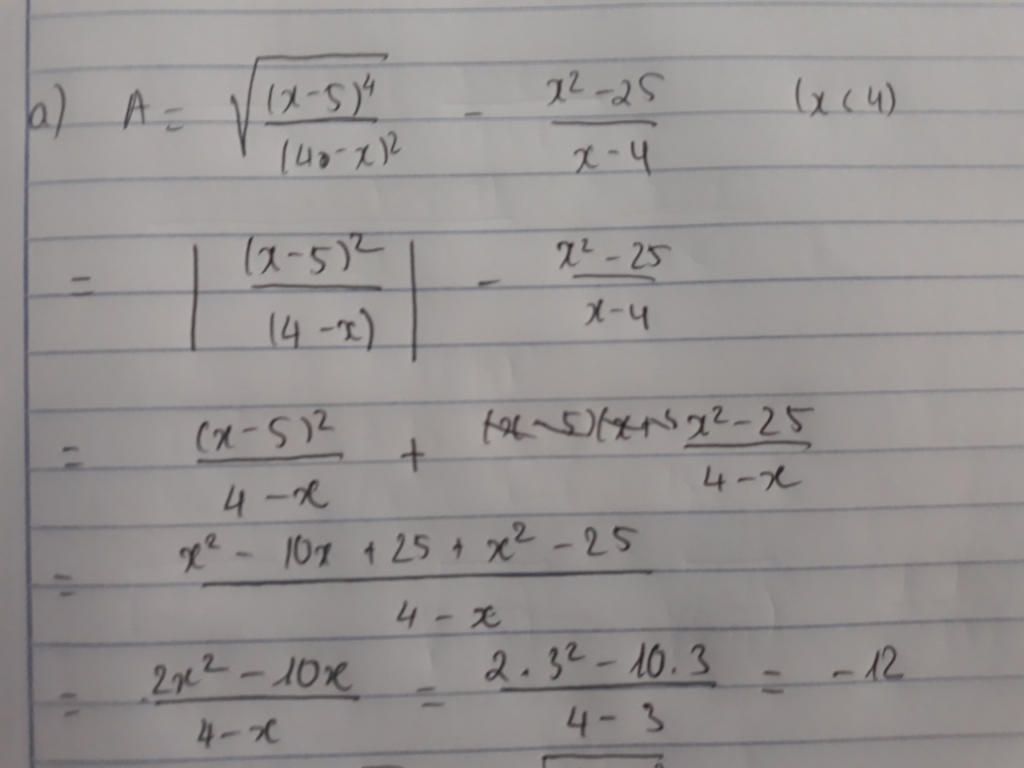 a) A = √((x-5)⁴/(4-x)²) - (x²-25)/(x-4) (x<4)
= |(x-5)²/(4-x)| - (x²-25)/(x-4)
= (x-5)²/(4-x) + (x-5)(x+5 (x²-25)/(4-x)
= (x² - 10x + 25 + x² - 25)/(4-x)
= (2x² - 10x)/(4-x) = (2.3² - 10.3)/(4-3) = -12